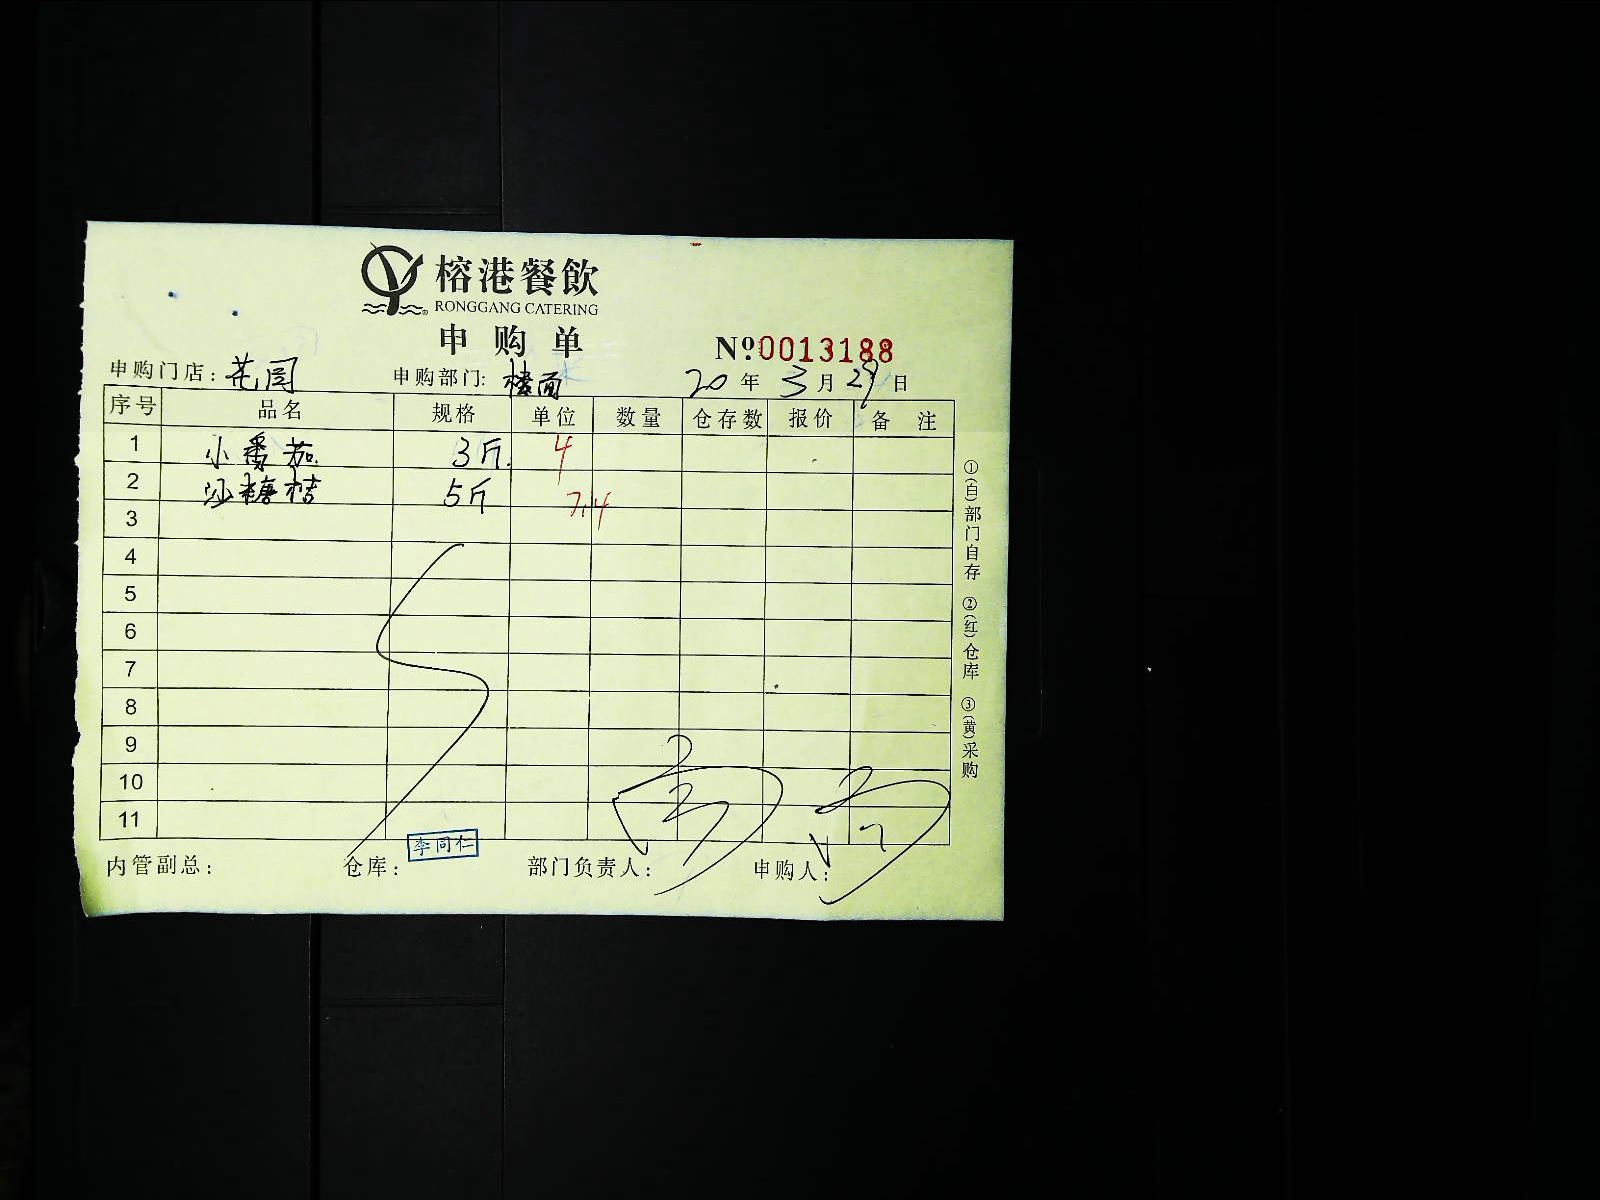 榕港餐飲
RONGGANG CATERING
申购单
Nº 0013188
申购门店：花园 申购部门：楼面 20年3月29日
序号 品名 规格 单位 数量 仓存数 报价 备注
1 小番茄 3斤. 4
2 沙糖桔 5斤 7.4
3
4
5
6
7
8
9
10
11
内管副总： 仓库：李同仁 部门负责人： 申购人：
①(白)部门自存 ②(红)仓库 ③(黄)采购